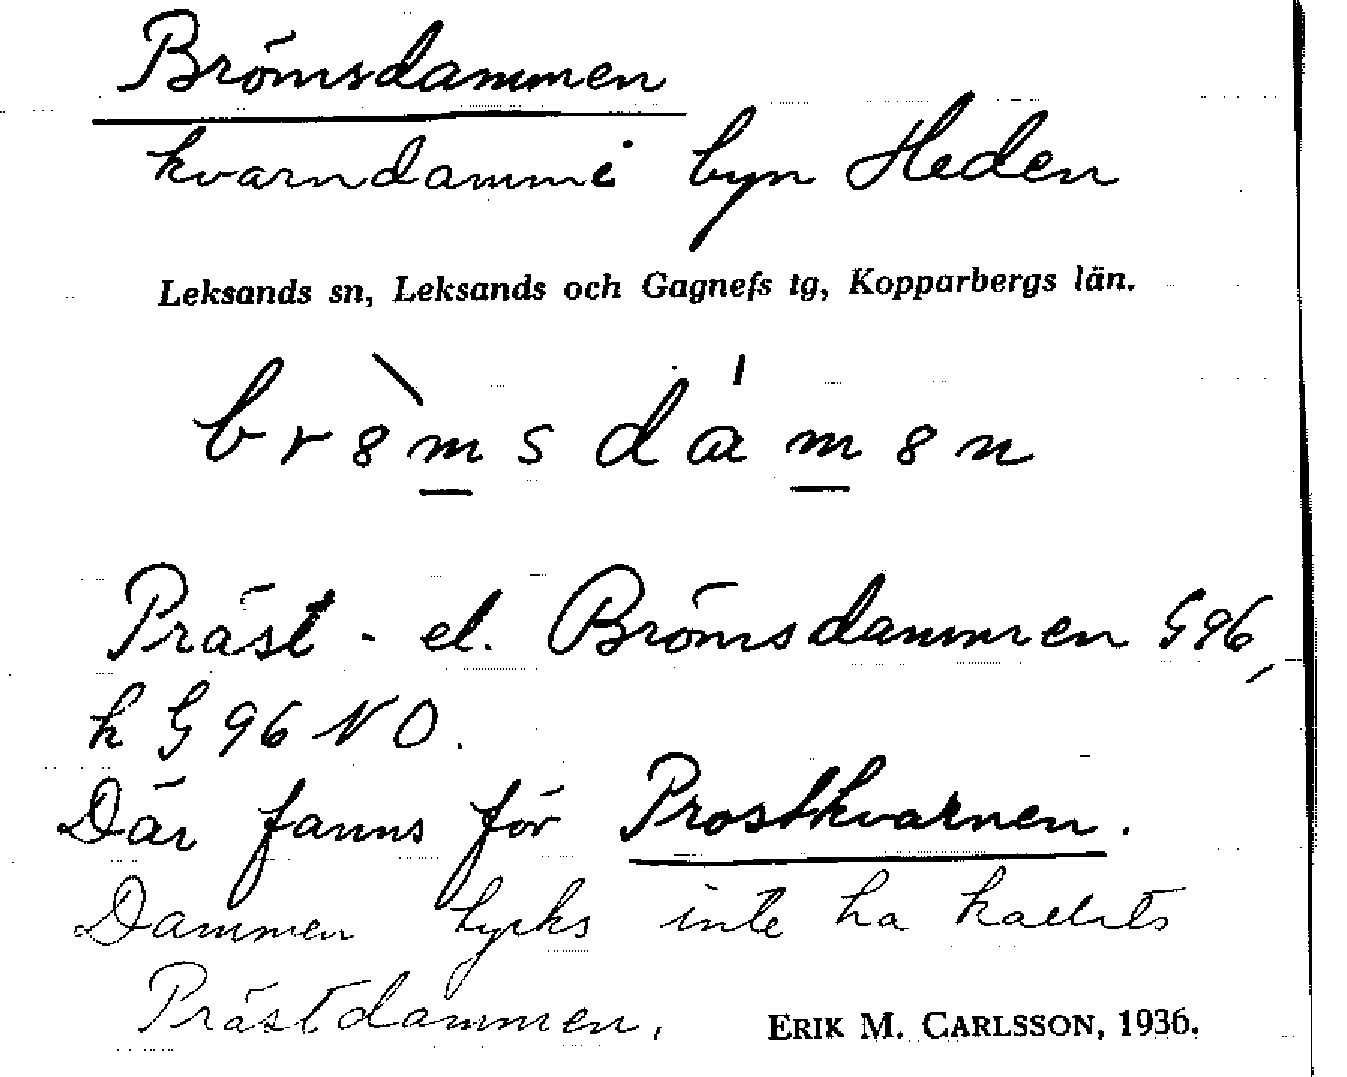 Brömsdammen
kvarndamm i byn Heden
Leksands sn, Leksands och Gagnefs tg, Kopparbergs län.
br8̀m̲sdá̀m̲8n
Präst- el. Brömsdammen G96,
k G 96 NO.
Där fanns förr Prostkvarnen.
Dammen tycks inte ha kallats
Prästdammen.
ERIK M. CARLSSON, 1936.